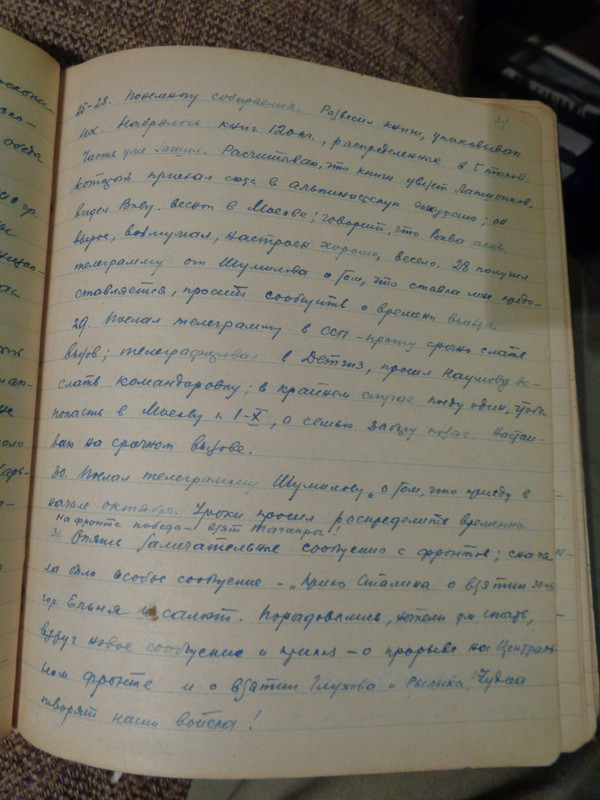 25-28. Понемногу собираемся. Развесил книги, упаковываю
их. Набралось книг 120 кг., распределенных в 5 пачек.
Часть уже зашил. Рассчитываю, что книги увезет Латынцов,
который приехал сюда в альпинистскую экспедицию; он
видел Вивву весной в Москве; говорит, что Вивва очень
вырос, возмужал, настроен хорошо, весело. 28 получил
телеграмму от Шумилова о том, что ставка мне предо-
ставляется, просит сообщить о времени выезда.
29. Послал телеграмму в ССП - прошу срочно слать
вызов; телеграфировал в Детгиз, просил Наумову вы-
слать командировку; в крайнем случае поеду один, чтобы
попасть в Москву к 1-X, а семью заберу позже. Настаи-
ваю на срочном вызове.
30. Послал телеграмму Шумилову о том, что приеду в
начале октября. Уроки просил распределить временно.
На фронте победа - взят Таганрог!
31. Опять замечательные сообщения с фронтов; снача-
ла было особое сообщение - „Приказ Сталина о взятии
гор. Ельня и салют. Порадовались, хотели уж спать,
вдруг новое сообщение и приказ - о прорыве на Централь-
ном фронте и о взятии Глухова и Рыльска! Чудеса
творят наши войска!